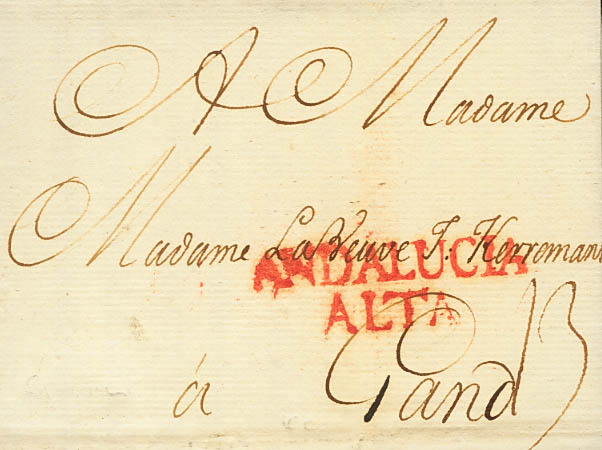 A Madame
Madame La Veuve J. Herremans
ANDALUCIA
ALTA
á Gand
13